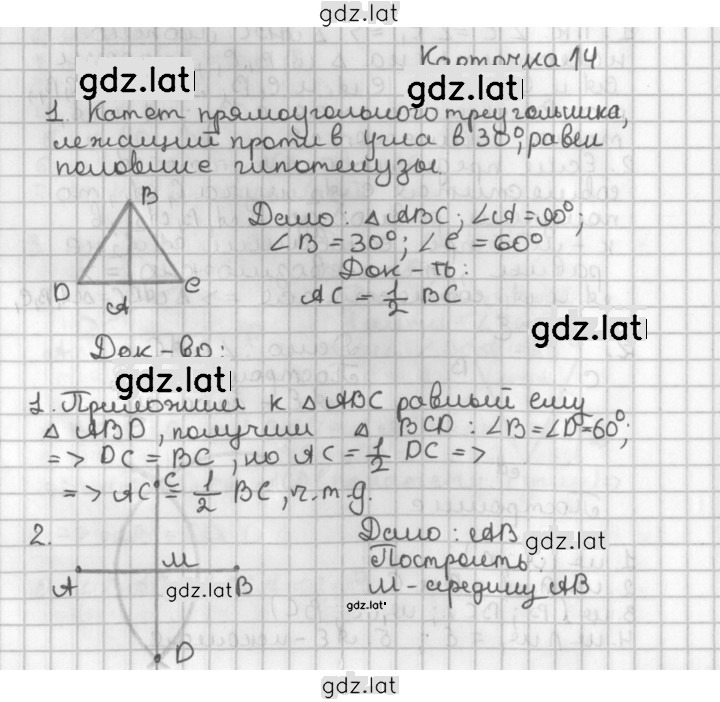 gdz.lat
Карточка 14
gdz.lat
1. Катет прямоугольного треугольника,
лежащий против угла в 30°, равен
половине гипотенузы.
B
D
A
C
Дано: △ABC; ∠A=90°;
∠B=30°; ∠C=60°
Док-ть:
AC = 1/2 BC
gdz.lat
Док-во:
gdz.lat
1. Приложим к △ABC равный ему
△ABD, получим △ BCD: ∠B=∠D=60°;
=> DC = BC, но AC = 1/2 DC =>
=> AC = 1/2 BC, ч.т.д.
2.
C
M
A
B
D
gdz.lat
Дано: AB
gdz.lat
Построить:
M-середину AB
gdz.lat
gdz.lat